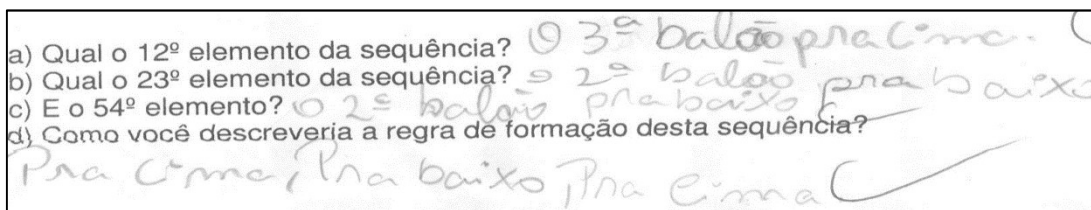 a) Qual o 12º elemento da sequência? O 3ª balão pra cima.
b) Qual o 23º elemento da sequência? o 2ª balão pra baixo
c) E o 54º elemento? O 2º balão pra baixo
d) Como você descreveria a regra de formação desta sequência?
Pra cima, Pra baixo, Pra cima